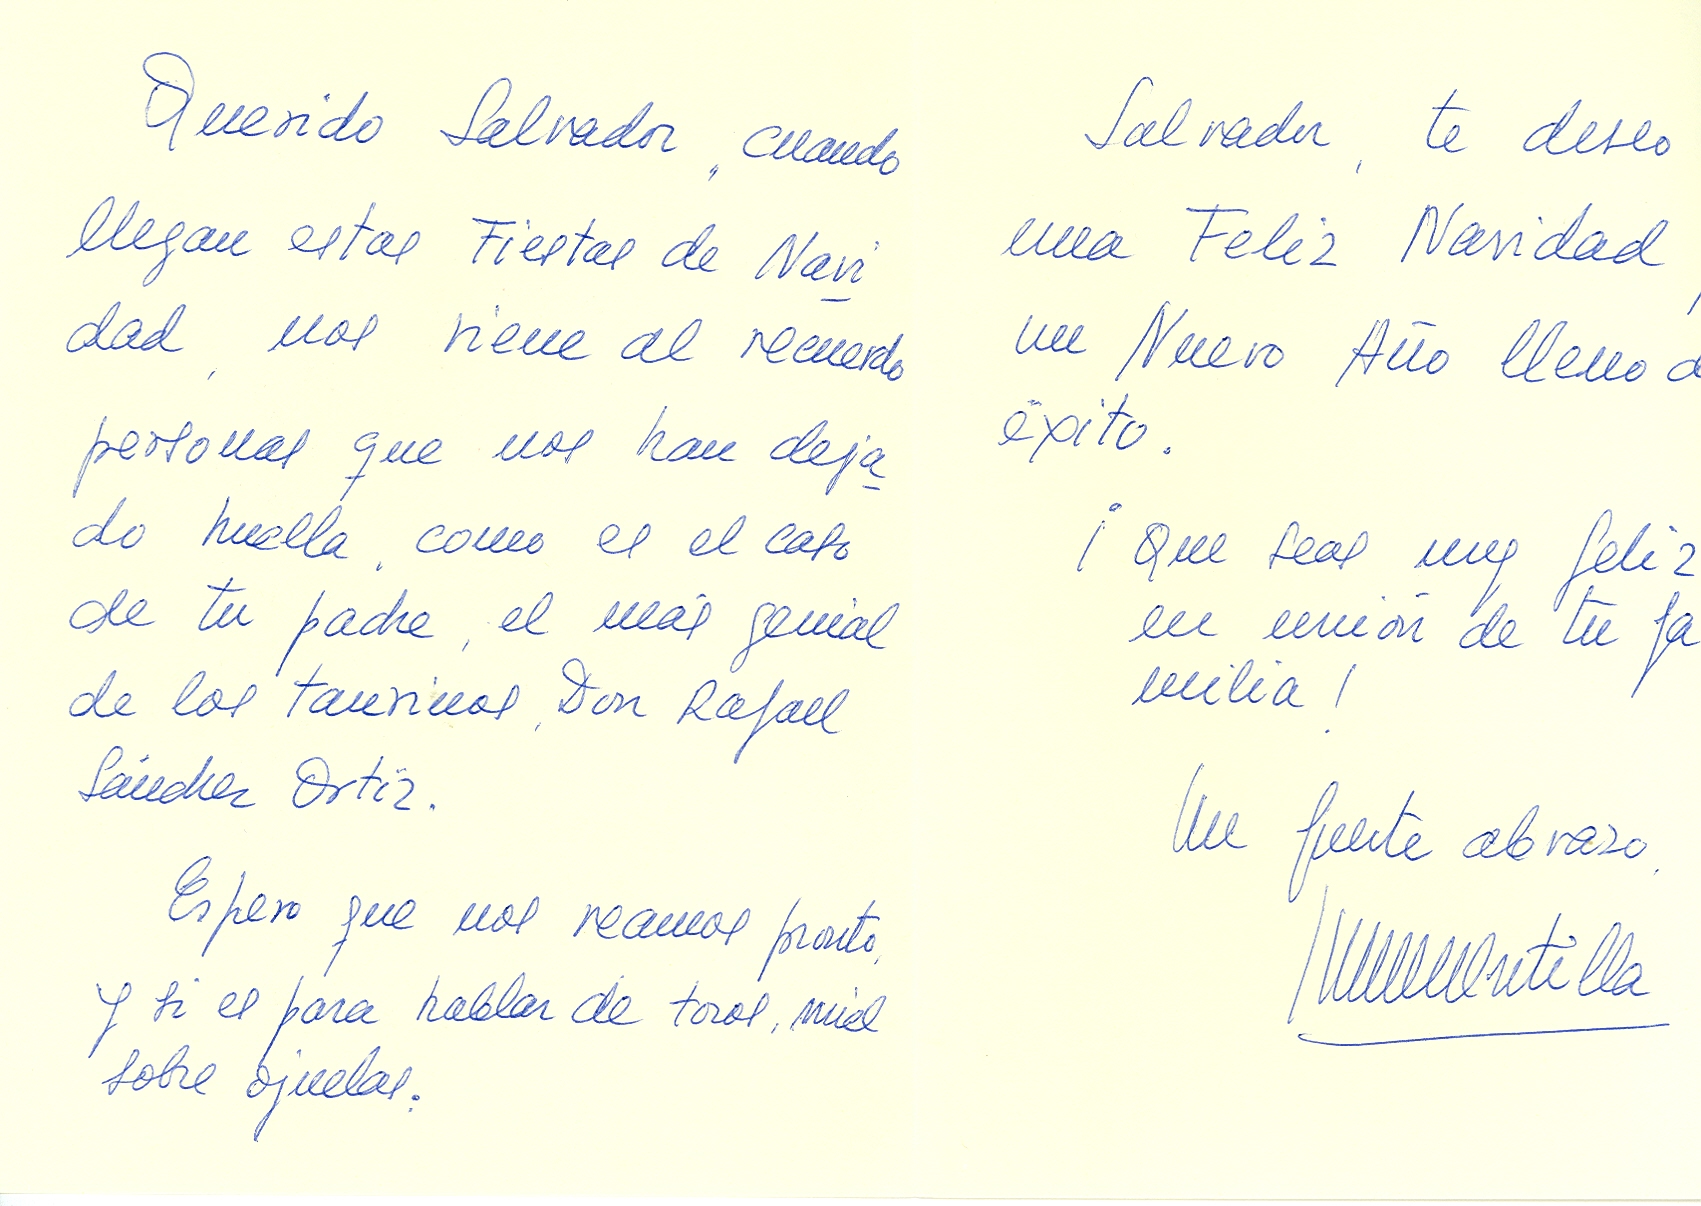 Querido Salvador, cuando
llegan estas Fiestas de Navi
dad, nos viene al recuerdo
personas que nos han deja
do huella, como es el caso
de tu padre, el más genial
de los taurinos, Don Rafael
Sánchez Ortiz.
Espero que nos veamos pronto,
y si es para hablar de toros, miel
sobre ojuelas.
Salvador, te deseo
una Feliz Navidad,
un Nuevo Año lleno d
éxito.
¡Que seas muy feliz
en unión de tu fa
milia!
Un fuerte abrazo.